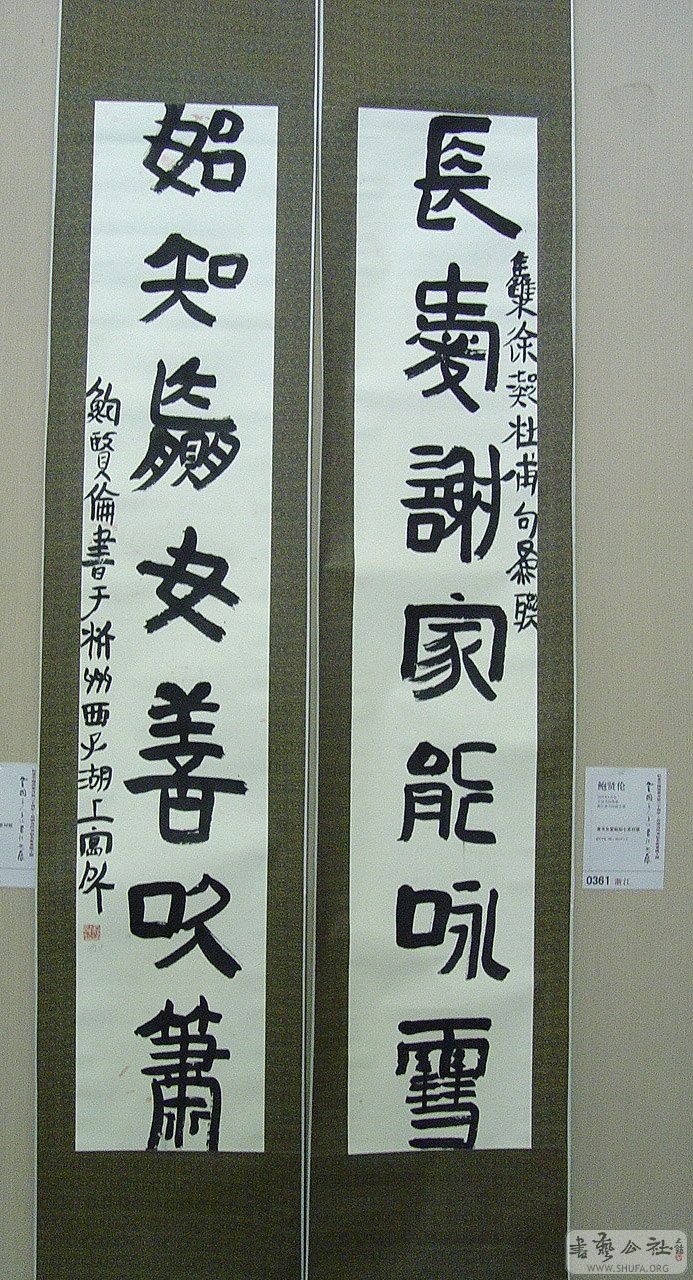 長愛謝家能咏雪
集徐凝杜甫句聯
始知嬴女善吹簫
鮑賢倫書于杭州西子湖上寓所
鲍贤伦
0361 浙江
書藝公社
WWW.SHUFA.ORG